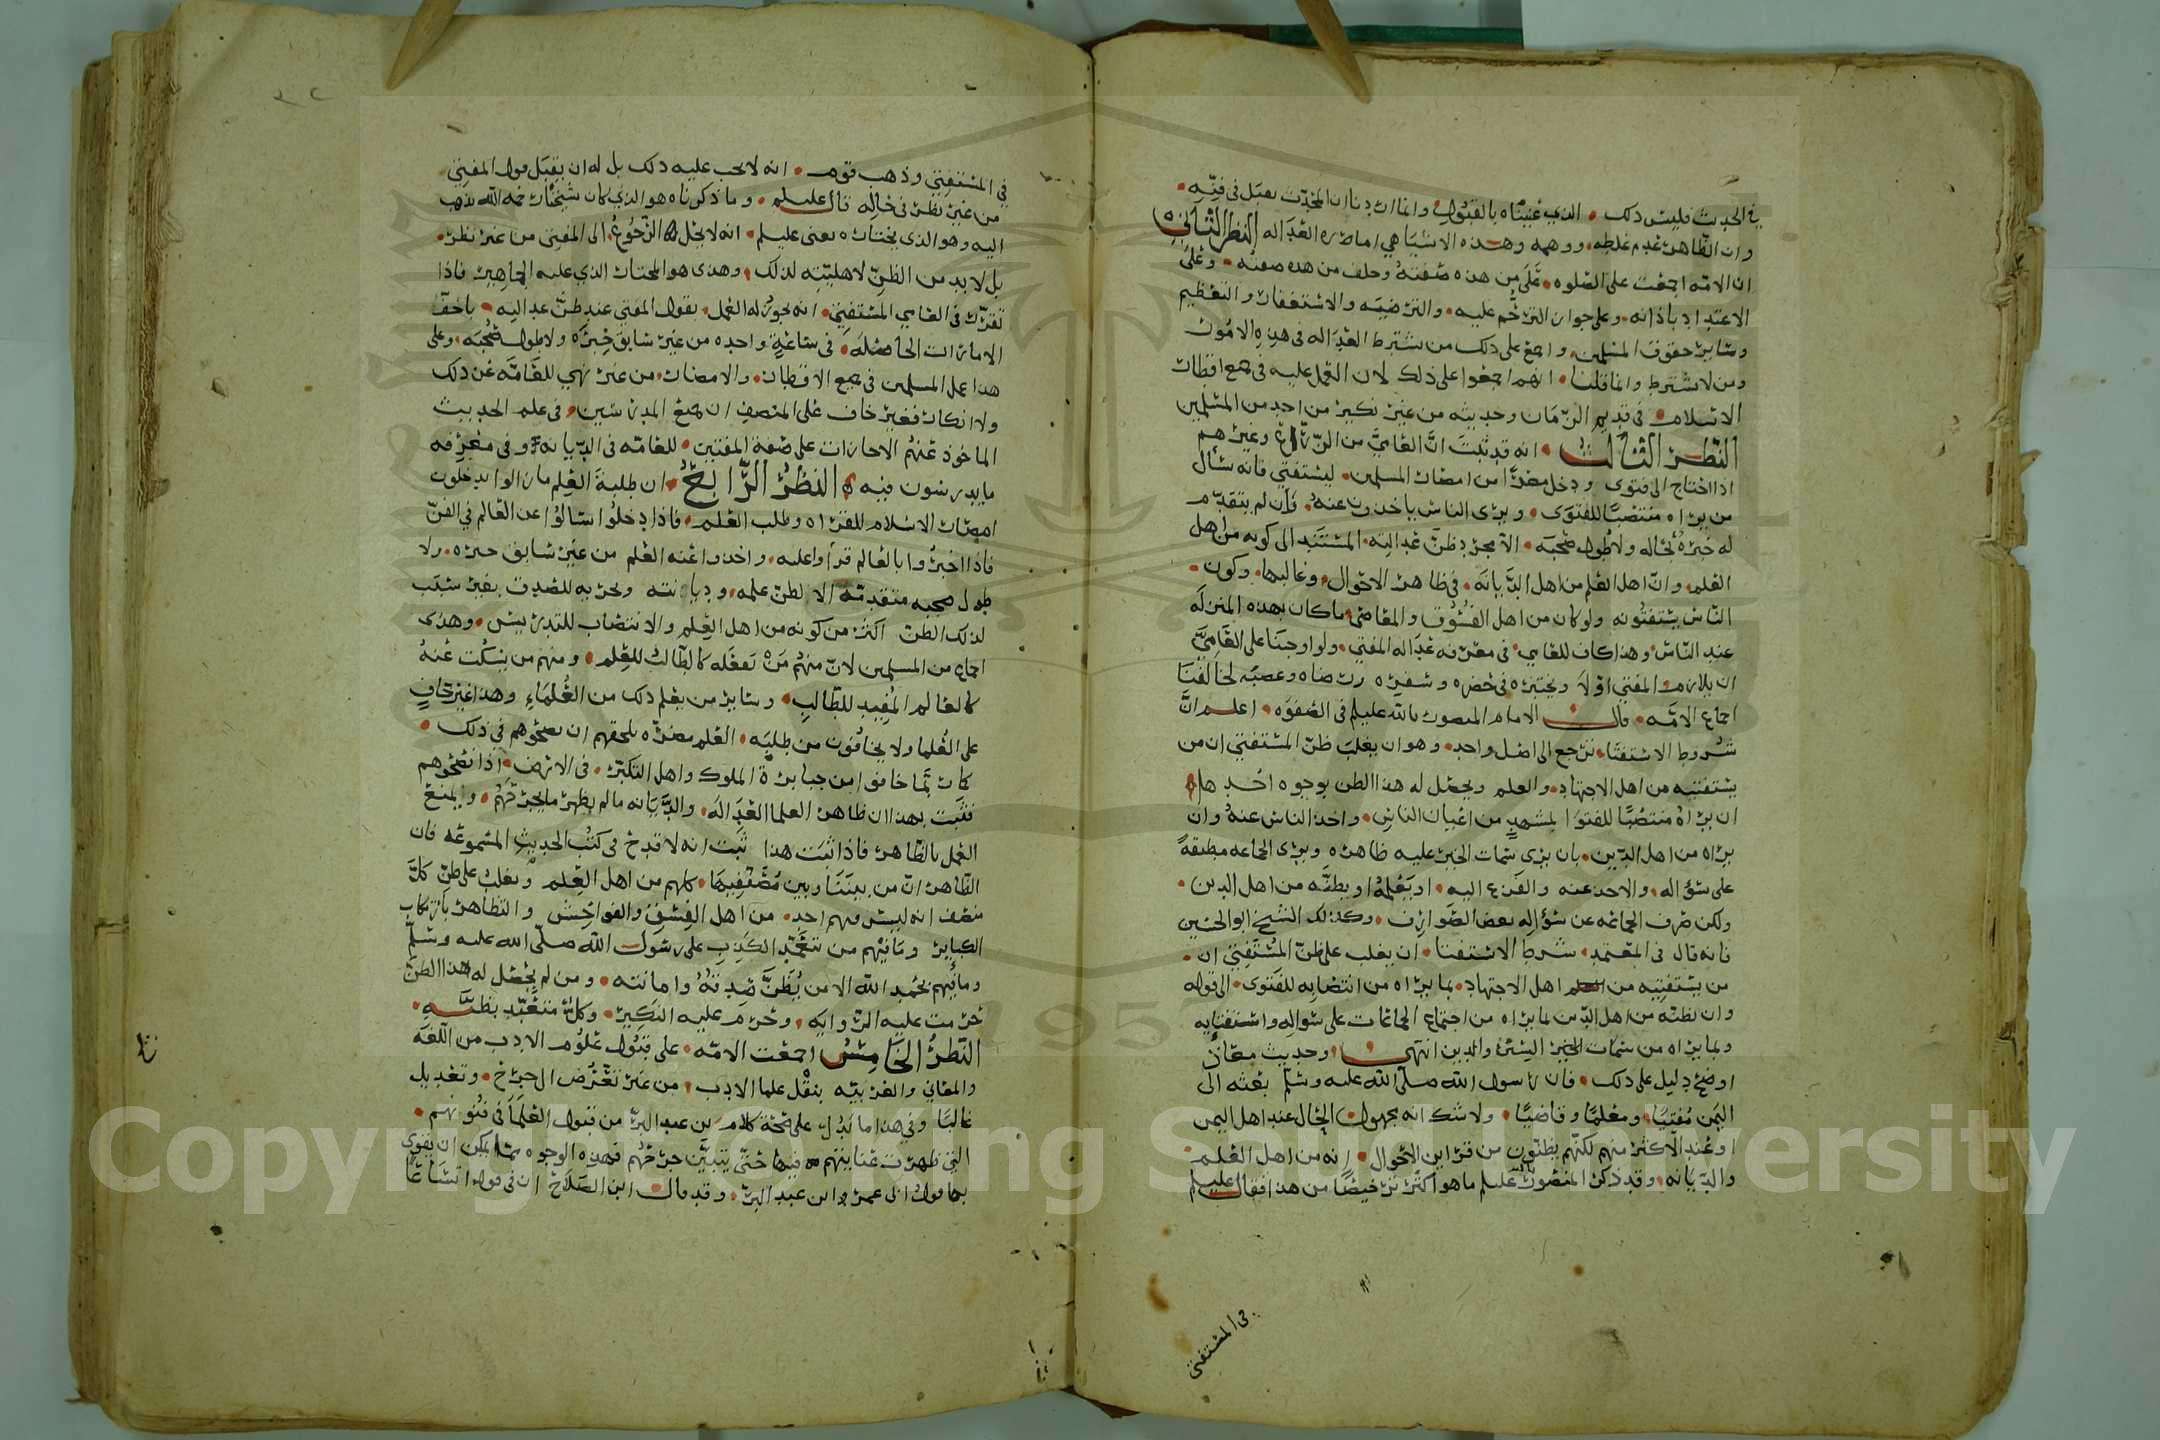 في الحديث فليس ذلك الذي عنيناه بالقبول وانما اردنا ان المحدث يقبل في فنه
وان الظاهر عدم غلطه ووهمه وهذه الاشيا هي اماره العداله النظر الثاني
ان الامه اجمعت على الصلوه على من هذه صفته وخلف من هذه صفته وعلى
الاعتداد باذانه وعلى جواز الترحم عليه والترضيه والاستغفار والتعظيم
وساير حقوق المسلمين واجمع على ذلك من يشترط العداله في هذه الامور
ومن لا يشترط وانما قلنا انهم اجمعوا على ذلك لان العمل عليه في جميع اقطار
الاسلام في قديم الزمان وحديثه من غير نكير من احد من المسلمين
النظر الثالث انه قد ثبت ان العامي من الزراع وغيرهم
اذا احتاج الى فتوى ودخل مصرا من امصار المسلمين ليستفتي فانه سأل
من يراه منتصبا للفتوى ويرى الناس ياخذون عنه فان لم يتقدم
له خبره بحاله ولا طول صحبه الا مجرد ظن عدالته المستند الى كونه من اهل
العلم وان اهل العلم من اهل الديانه في ظاهر الاحوال وغالبها وكون
الناس يستفتونه ولو كان من اهل الفسوق والمعاصي ماكان بهذه المنزله
عند الناس وهذا كان للعامي في معرفه عداله المفتي ولو اوجبنا على العامي
ان يلازم المفتي اولا ويختبره في حضره وسفره ورضاه وغضبه لخالفنا
اجماع الامه قال الامام المنصور بالله عليلم في الصفوه اعلم ان
شروط الاستفتا ترجع الى اصل واحد وهو ان يغلب ظن المستفتي ان من
يستفتيه من اهل الاجتهاد والعلم ويحصل له هذا الظن بوجوه احدها
ان يراه منتصبا للفتوا بمشهد من اعيان الناس واخذ الناس عنه وان
يراه من اهل الدين بان يرى سمات الخير عليه ظاهره ويرى الجماعه مطبقة
على سؤاله والاخذ عنه والفزع اليه او يعلمه او يظنه من اهل الدين
ولكن صرف الجماعه عن سؤاله بعض الصوارف وكذلك الشيخ ابو الحسين
فانه قال في المعتمد شرط الاستفتا ان يغلب على ظن المستفتي ان
من يستفتيه من اهل الاجتهاد بما يراه من انتصابه للفتوى الى قوله
وان يظنه من اهل الدين بما يراه من اجتماع الجماعات على سواله واستفتايه
وبما يراه من سمات الخير والدين انتهى وحديث معاذ
اوضح دليل على ذلك فان رسول الله صلى الله عليه وسلم بعثه الى
اليمن مفتيا ومعلما وقاضيا ولا شك انه مجهول الحال عند اهل اليمن
او عند الاكثر منهم لكنهم يظنون من قراين الاحوال انه من اهل العلم
والديانه وقد ذكر المنصور بالله عليلم ما هو اكثر ترخيصا من هذا فقال عليلم
في المستفتي
في المستفتي وذهب قوم انه لا يجب عليه ذلك بل له ان يقبل قول المفتي
من غير نظر في حاله قال عليلم وما ذكرناه هو الذي كان شيخنا رحمه الله يذهب
اليه وهو الذي يختاره يعنى عليلم انه لا يحل الرجوع الى المفتي من غير نظر
بل لا بد من الظن لاهليته لذلك وهذى هو المختار الذي عليه الجماهير فاذا
تقرر في العامي المستفتي انه يجوز له العمل بقول المفتي عند ظن عدالته باخف
الامارات الحاصله في ساعة واحده من غير سابق خبره ولا طول صحبه وعلى
هذا عمل المسلمين في جميع الاقطار والامصار من غير نهي للعامه عن ذلك
ولا انكار فغير خاف على المنصف ان جميع المدرسين في علم الحديث
الماخوذ عنهم الاجازات على صفة المفتين للعامه في الديانه وفي معرفه
ما يدرسون فيه النظر الرابع ان طلبة العلم مازالوا يدخلون
امصار الاسلام للقراه وطلب العلم فاذا دخلوا سالوا عن العالم في الفن
فاذا اخبروا بالعالم قراوا عليه واخذوا عنه العلم من غير سابق خبره ولا
طول صحبه متقدمه الا لظن علمه وديانته وتحريه للصدق بغير سبب
لذلك الظن اكثر من كونه من اهل العلم والانتصاب للتدريس وهذى
اجماع من المسلمين لان منهم من يفعله كالطالب للعلم ومنهم من يسكت عنه
كالعالم المفيد للطالب وساير من يعلم ذلك من العلماء وهذا غير خاف
على العلما ولا يخافون من طلبه العلم مضره تلحقهم ان نصحوهم في ذلك
كما ربما خافوا من جبابرة الملوك واهل التكبر في الارض اذا نصحوهم
فثبت بهذا ان ظاهر العلما العداله والديانه مالم يظهر ما يجرحهم ويمنع
العمل بالظاهر فاذا ثبت هذا ثبت انه لا قدح في كتب الحديث المسموعه فان
الظاهر ان من بيننا وبين مصنفيها كلهم من اهل العلم ويغلب على ظن كل
منصف انه ليس فيهم احد من اهل الفسق والفواحش والتظاهر بارتكاب
الكباير وما فيهم من يتعمد الكذب على رسول الله صلى الله عليه وسلم
وما فيهم بحمد الله الا من يظن صدقه وامانته ومن لم يحصل له هذا الظن
حرمت عليه الروايه وحرم عليه النكير وكل متعبد بظنه
النظر الخامس اجمعت الامه على قبول علوم الادب من اللغه
والمعاني والعربيه بنقل علما الادب من غير تعرض الجرح وتعديل
غالبا وفي هذا ما يدل على صحة كلام بن عبد البر من قبول العلما في فنونهم
التي ظهرت عنايتهم فيها حتى يتبين جرحهم فهذه الوجوه مما يمكن ان يقوى
بها قول ابي عمر ابن عبد البر وقد قال ابن الصلاح ان في قوله اتساعا
Copyright © King Saud University